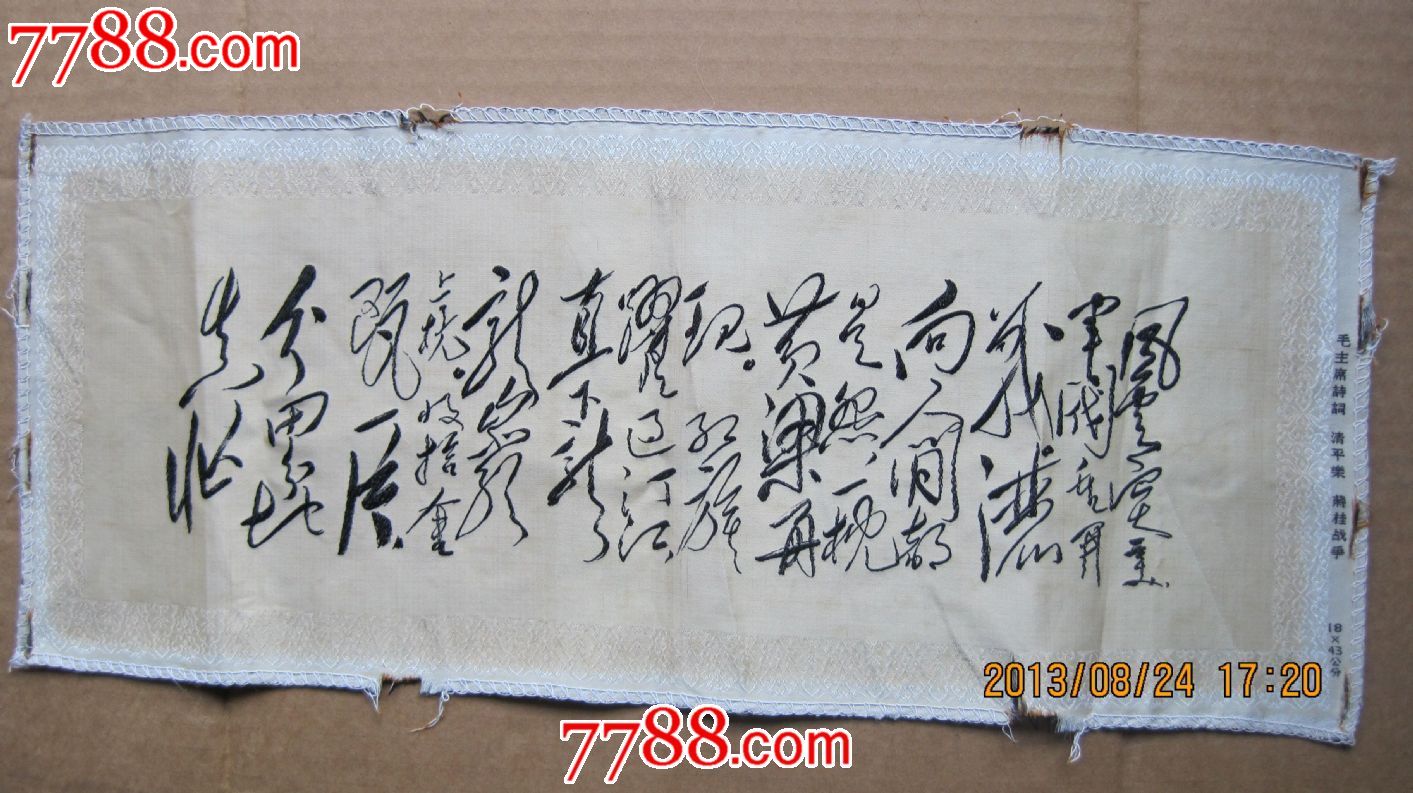 7788.com
毛主席詩詞 清平樂 蔣桂战爭
18×43公分
風雲突變
軍閥重開
戰灑
向人間都
是怨，一枕
黃粱再
現。紅旗
躍過汀江
直下龍
龍巖
上杭。收拾金
甌一片
分田分地
真忙
2013/08/24 17:20
7788.com